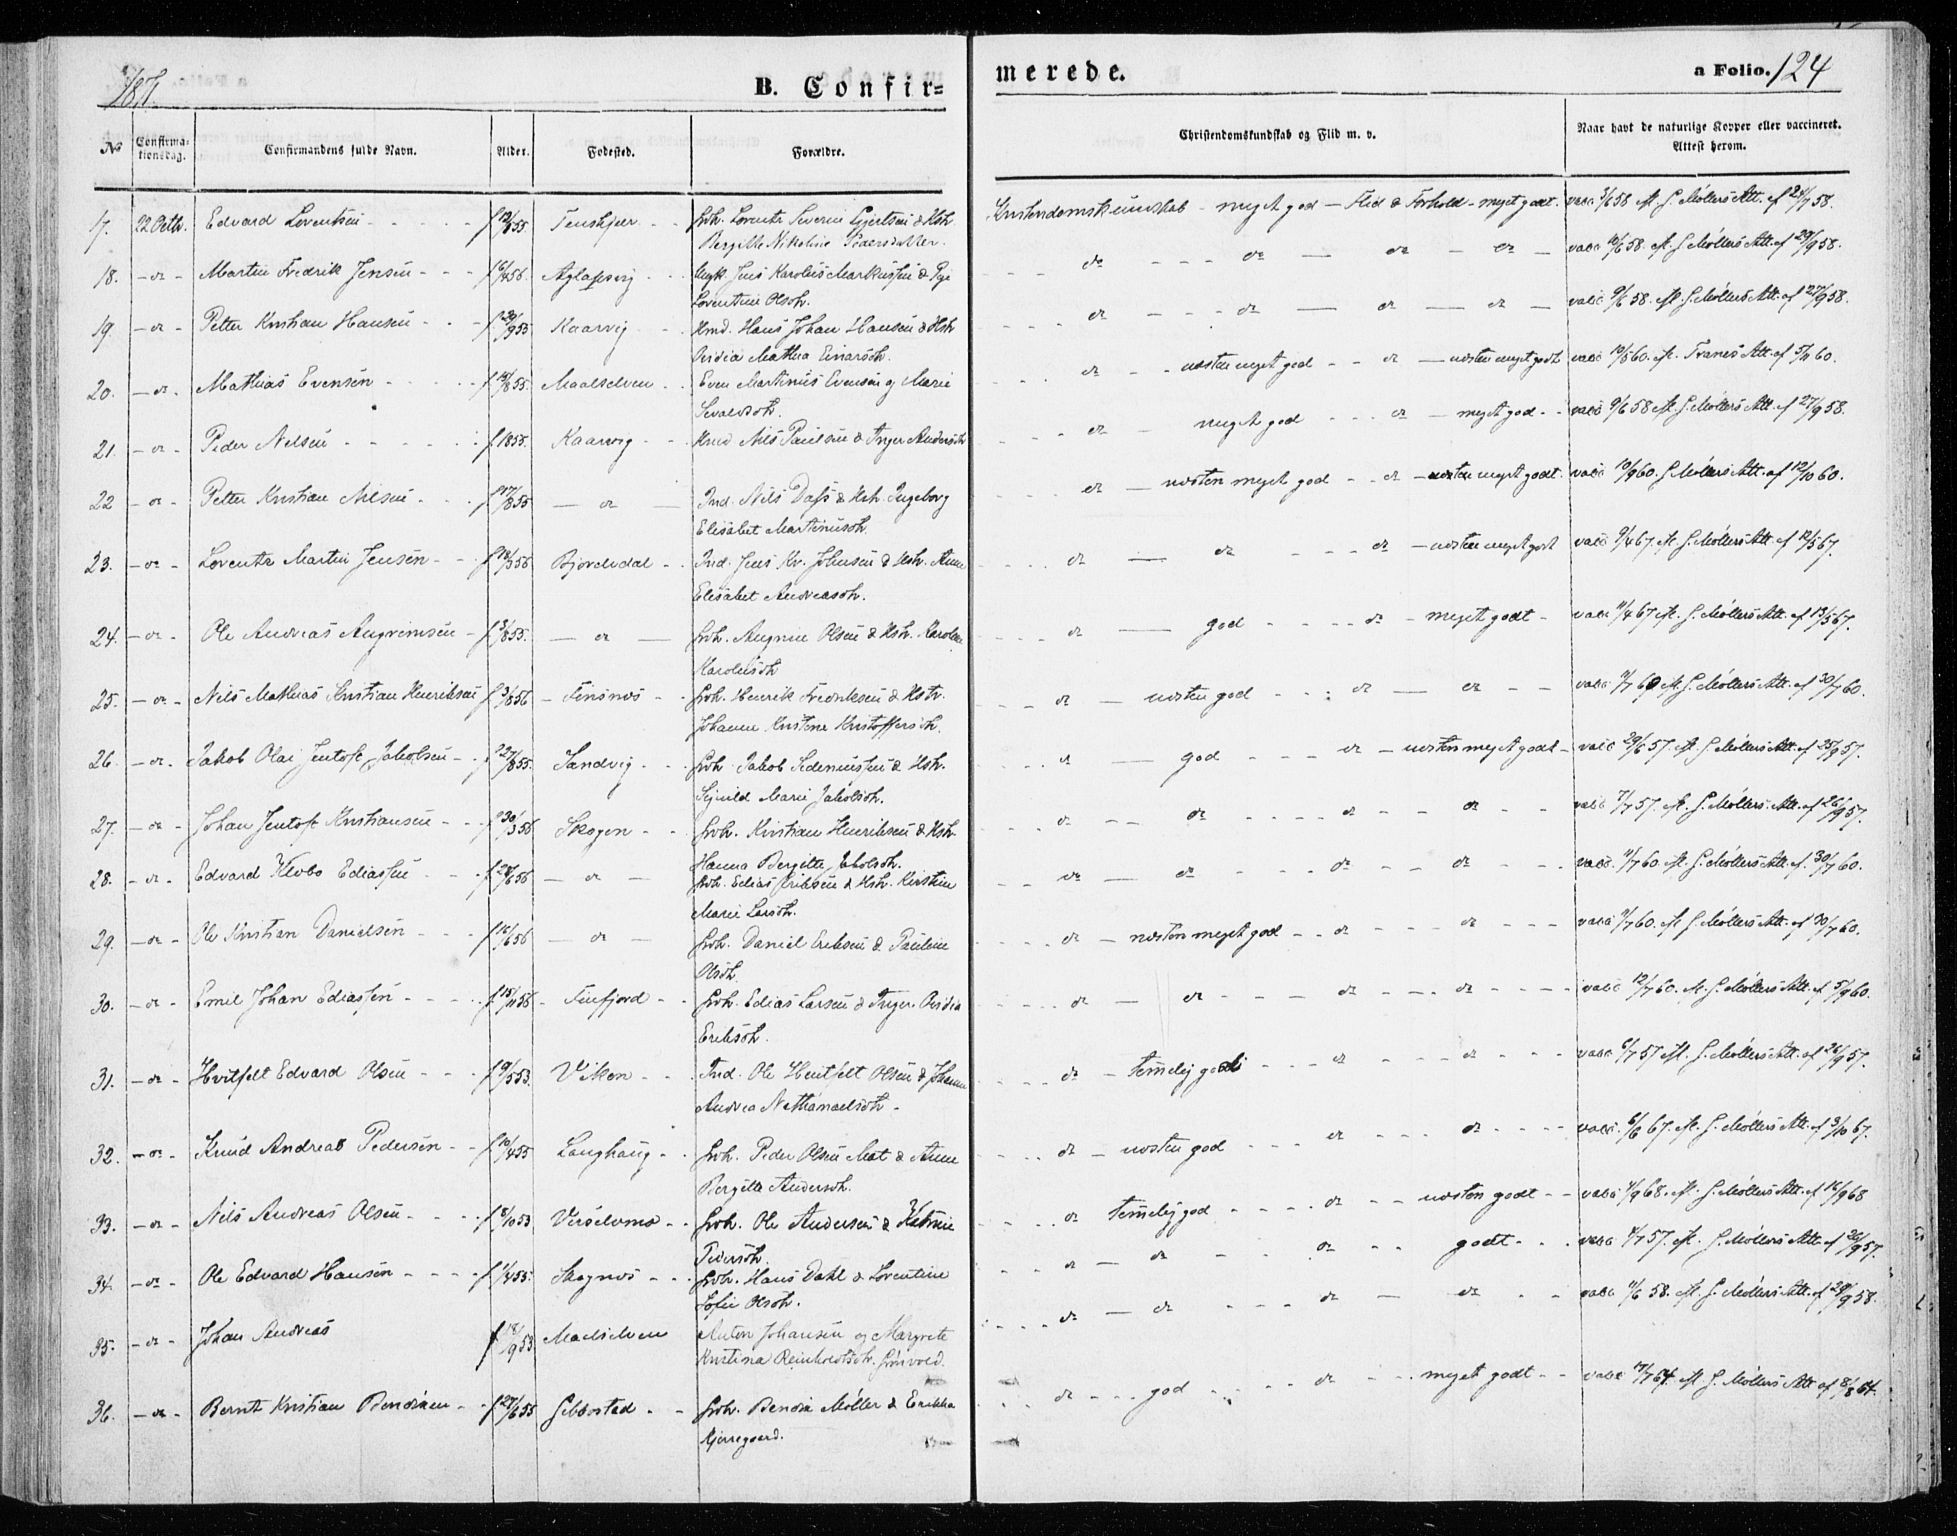 1871.
B. Confir=
merede.
a Folio. 124
No
Confirma-
tionsdag.
Confirmandens fulde Navn.
Alder.
Fødested.
Forældre.
Christendomskundskab og Flid m. v.
Naar havt de naturlige Kopper eller vaccineret.
Attest herom.
17. 22 Octbr. Edvard Lorentsen f 12/855. Lorentz Severin Gjertsen & Hstr.
Bergitte Nikoline Pedersdatter.
Kristendomskunskab - meget god - Flid & Forhold meget godt. vacc 3/6 58 M. G. Møllers Att. af 24/7 58.
18. - do - Martin Fredrik Jensen f 6/456. Jens Karolius Markussen & Pige
Lorentine Olsdtr.
do - do - do - do vacc 10/6 58. M. G. Møllers Att. af 29/9 58.
19. - do - Petter Kristian Hansen f 29/955 Kaarvig Hans Johan Hansen & Hstr
Mathea Einarsdtr.
do - do - do - do vacc 9/6 58. M. G. Møllers Att. af 27/9 58.
20. - do - Mathias Evensen f 855. Maalselven Even Martinus Evensen og Marie
Sevaldsdtr.
do - næsten meget god - do - næsten meget godt vacc 10/5 60. M. Att. af 5/11 60.
21. - do - Peder Nelsen f 1855. Kaarvig Nils Paulsen & Inger Andersdtr
do - meget god - do - meget god vacc 9/6 58 M. G. Møllers Att. af 27/9 58.
22 - do - Petter Kristian Nilsen f 17/855 - do - Ind. Nils Dass & Hstr. Ingeborg
Elisabet Martinusdtr.
do - næsten meget god - do - næsten meget godt. vacc 10/9 60. G. Møllers Att. af 12/10 60.
23. - do - Lorentz Martin Jensen f 18/356 Bjorelvdal Ind. Jens Kr. Johnsen & Hstr. Anne
Elisabet Andreasdtr.
do - do - do - næsten meget godt vacc 9/4 67. M. G. Møllers Att. af 12/5 67.
24. - do - Ole Andreas Angrimsen f 3/855. - do - Angrim Olsen & Hstr. Karoline
Karolusdtr
do - god - do - meget godt vacc 11/4 67 M. G. Møllers Att. af 13/5 67.
25. - do - Nils Mathias Kristian Henriksen f 3/856 Finsnæs Henrik Fredriksen & Hstr.
Johanne Kristine Kristoffersdtr.
do - næsten god - do - do vacc 9/7 60 M. G. Møllers Att. af 30/7 60.
26. - do - Jakob Olai Jentoft Jakobsen f 27/855. Sandvig Jakob Hstr.
Marie Jakobsdtr.
do - god - do - næsten meget godt vacc 29/6 57. M. G. Møllers Att. af 25/9 57.
27. - do - Johan Jentoft Kristiansen f 30/356 Skogen Kristian Henriksen & Hstr.
Hanna Bergitte
do - do - do - do vacc 7/7 57. M. G. Møllers Att. af 26/9 57.
28. - do - Edvard Klebo Ediassen f 28/656 - do - Edias Eriksen & Hstr. Kirstine
Marie Larsdtr.
do - do - do - do vacc. 11/7 60. M. G. Møllers Att. af. 30/7 60.
29. - do - Ole Kristian Danielsen f 12/656 - do - Daniel Eriksen & Pauline
Olsdtr.
do - næsten meget god - do - do vacc 9/7 60. M G. Møllers Att. af 30/7 60.
30. - do - Emil Johan Ediassen f 15/1156 Finfjord Edias Larsen & Inger
Eriksdtr.
do - do - do - do vacc 12/7 60. M. G. Møllers Att. af 5/9 60.
31. - do - Hvitfelt Edvard Olsen f 9/553. Viken Ind. Ole Hvitfelt Olsen & Johanna
Andrea Nathanaelsdtr.
do - temelig god - do - do vacc 6/7 57 M. G. Møllers Att. af 26/9 57.
32. - do - Knud Andreas Pedersen f 10/455 Langhaug Peder Olsen Mat & Anne
Bergitte Andersdtr.
do - næsten god - do - do vacc. 6/6 67. M. G. Møllers Att. af 3/10 67.
33. - do - Nils Andreas Olsen f 8/1053 Ole Andersen &
Pedersdtr.
do temelig god - do - næsten godt vacc 4/9 68. M. G. Møllers Att. af 16/9 68
34. - do - Ole Edvard Hansen f 1/455. Skognæs Hans Dahl & Lorentine
Sofie Olsdtr.
do - do - do - godt vacc 4/7 57. M. G. Møllers Att. af 26/9 57.
35. - do - Johan Andreas f 18/953 Maalselven Anton Johansen og Margrete
Kristina Reinholdtsdtr. Grønvold.
do - do - do - do vacc 11/6 58. M. G. Møllers Att. af 28/9 58.
36. - do - Bernt Kristian f 27/655 Gibbostad Møller & Erikka
Kjerregaard.
do - god - do - meget godt vacc 17/7 64. M G. Møllers Att af 8/8 64.